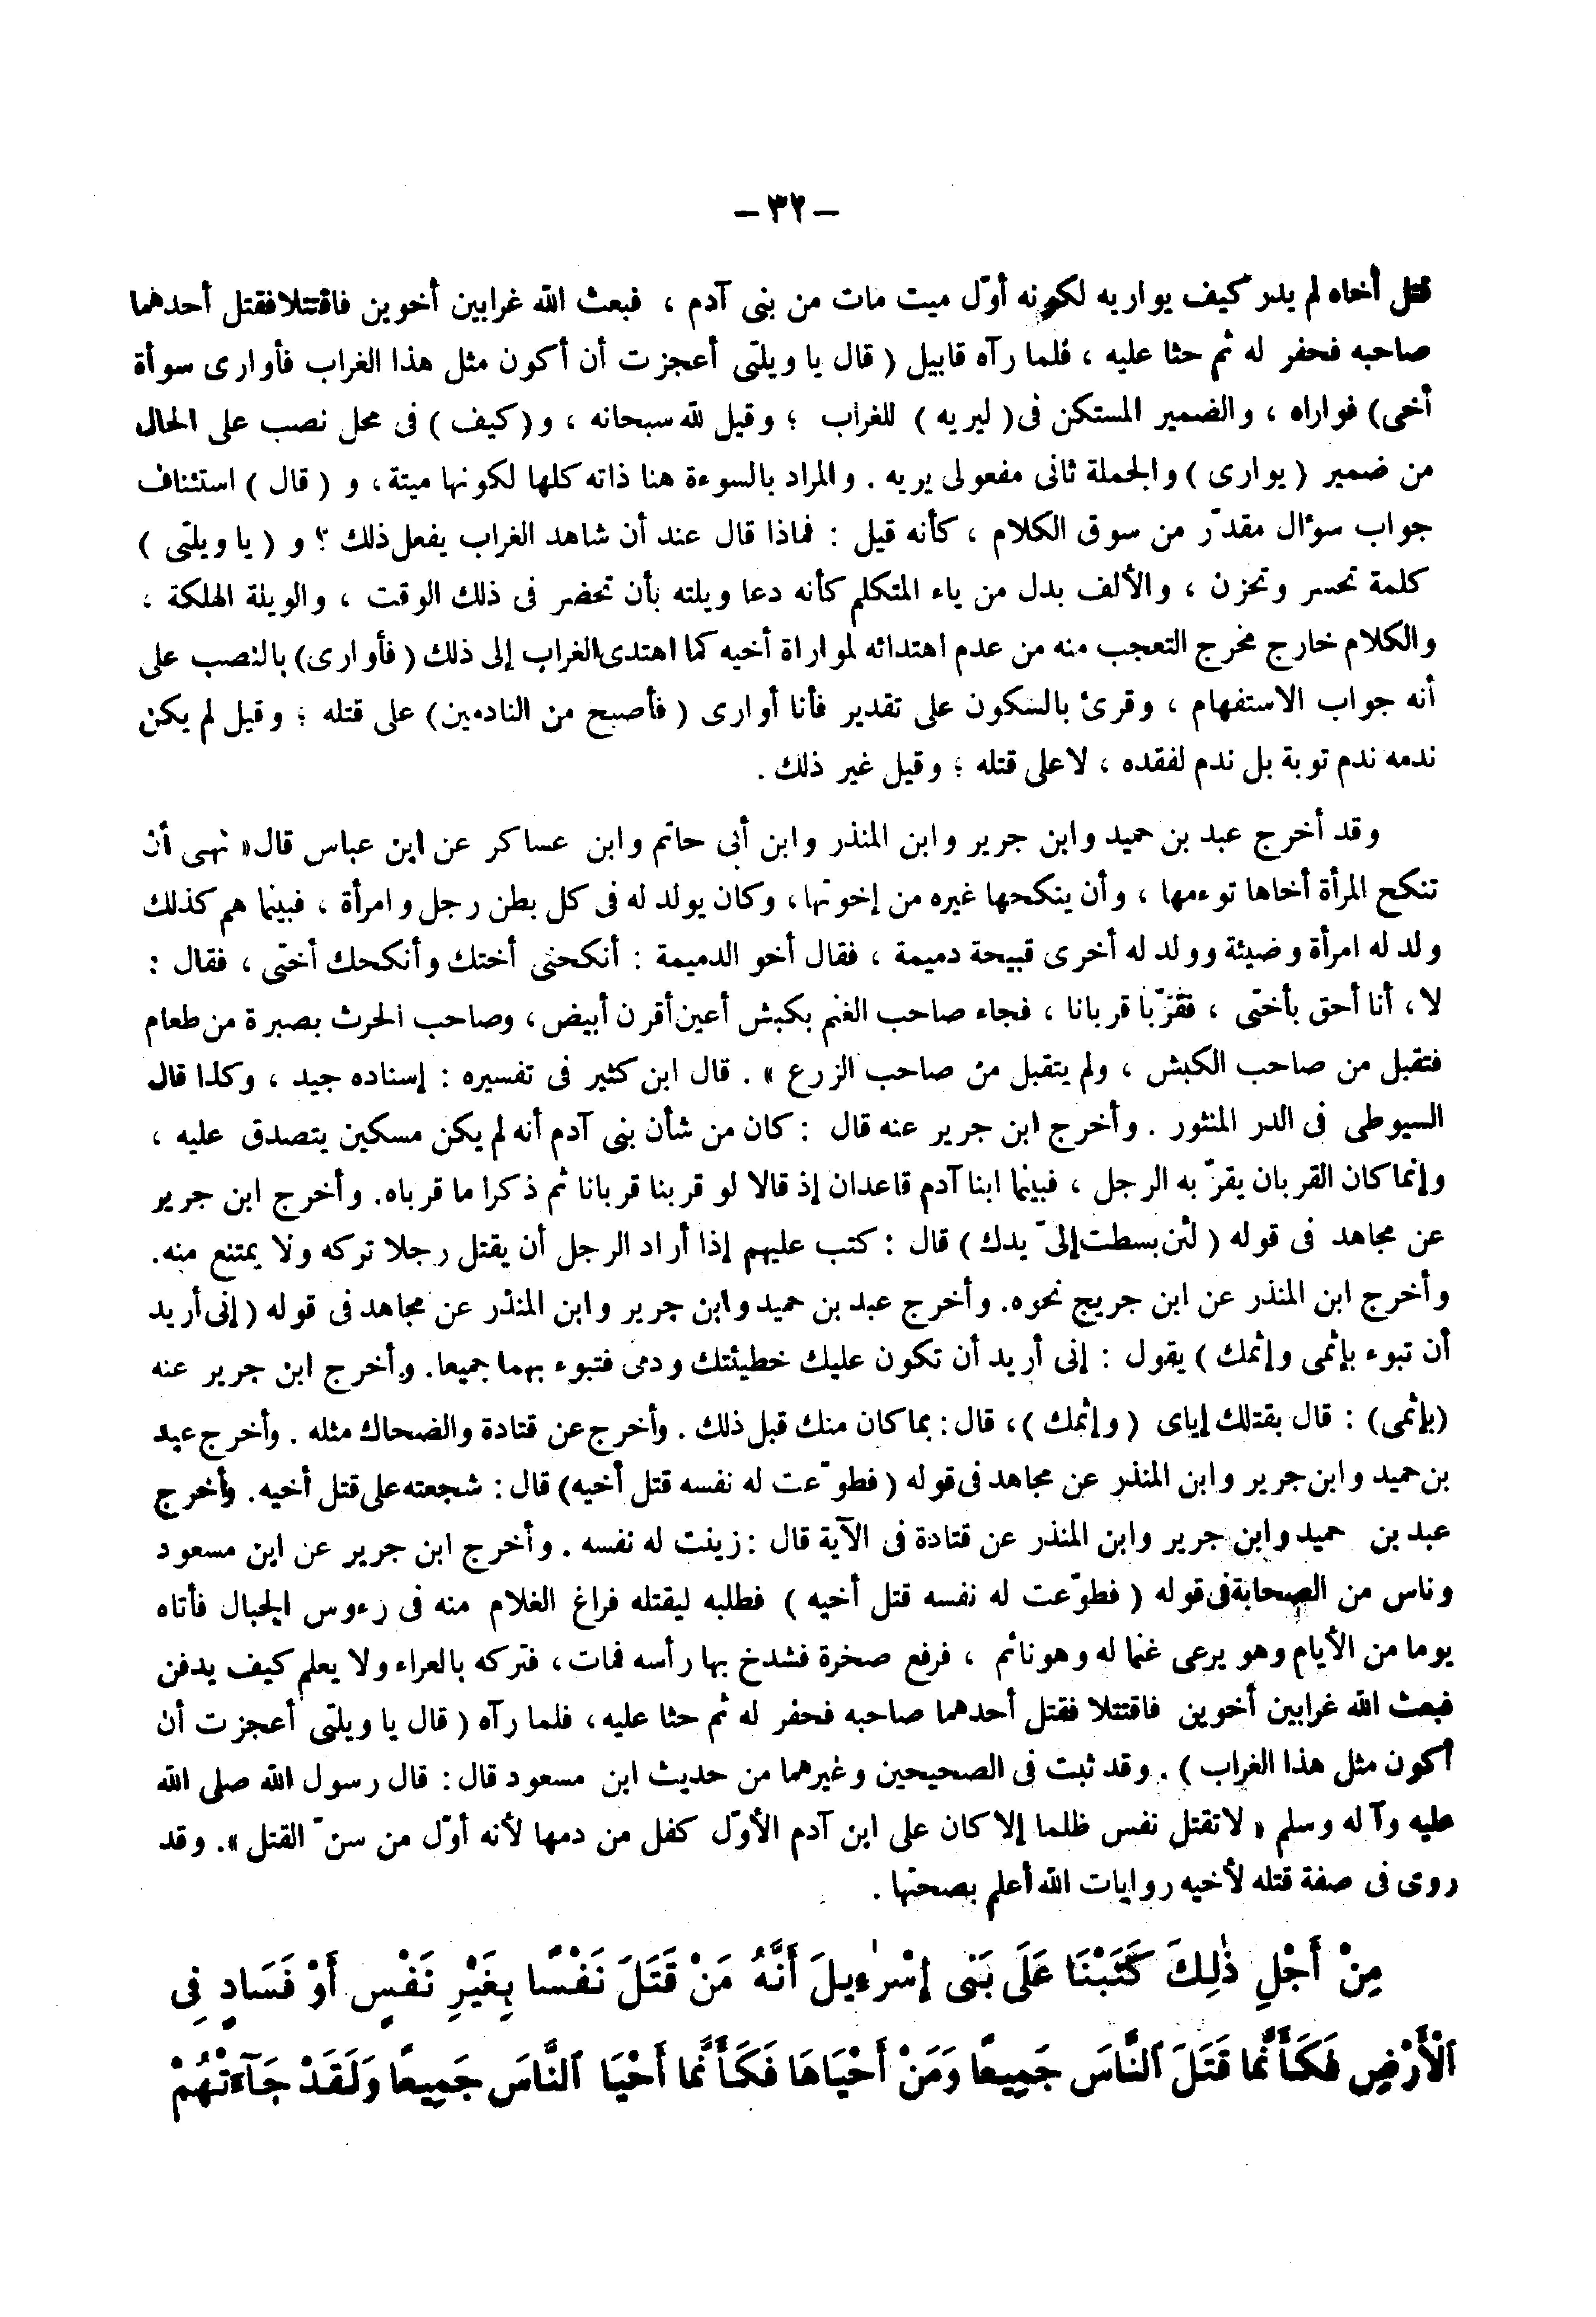 – ٣٢ –
قتل أخاه لم يدر كيف يواريه لكونه أوّل ميت مات من بنى آدم ، فبعث الله غرابين أخوين فاقتتلا فقتل أحدهما
صاحبه فحفر له ثم حثا عليه ، فلما رآه قابيل ( قال يا ويلتى أعجزت أن أكون مثل هذا الغراب فأوارى سوأة
أخى) فواراه ، والضمير المستكن فى ( ليريه ) للغراب ؛ وقيل لله سبحانه ، و( كيف ) فى محل نصب على الحال
من ضمير ( يوارى ) والجملة ثانى مفعولى يريه . والمراد بالسوءة هنا ذاته كلها لكونها ميتة ، و ( قال ) استئناف
جواب سؤال مقدّر من سوق الكلام ، كأنه قيل : فماذا قال عند أن شاهد الغراب يفعل ذلك ؟ و ( يا ويلتى )
كلمة تحسر وتحزن ، والألف بدل من ياء المتكلم كأنه دعا ويلته بأن تحضر فى ذلك الوقت ، والويلة الهلكة ،
والكلام خارج مخرج التعجب منه من عدم اهتدائه لمواراة أخيه كما اهتدى الغراب إلى ذلك ( فأوارى) بالنصب على
أنه جواب الاستفهام ، وقرئ بالسكون على تقدير فأنا أوارى ( فأصبح من النادمين) على قتله ؛ وقيل لم يكن
ندمه ندم توبة بل ندم لفقده ، لا على قتله ؛ وقيل غير ذلك .
وقد أخرج عبد بن حميد وابن جرير وابن المنذر وابن أبى حاتم وابن عساكر عن ابن عباس قال « نهى أن
تنكح المرأة أخاها توءمها ، وأن ينكحها غيره من إخوتها ، وكان يولد له فى كل بطن رجل وامرأة ، فبينما هم كذلك
ولد له امرأة وضيئة وولد له أخرى قبيحة دميمة ، فقال أخو الدميمة : أنكحنى أختك وأنكحك أختى ، فقال :
لا ، أنا أحق بأختى ، فقرّبا قربانا ، فجاء صاحب الغنم بكبش أعين أقرن أبيض ، وصاحب الحرث بصبرة من طعام
فتقبل من صاحب الكبش ، ولم يتقبل من صاحب الزرع » . قال ابن كثير فى تفسيره : إسناده جيد ، وكذا قال
السيوطى فى الدر المنثور . وأخرج ابن جرير عنه قال : كان من شأن بنى آدم أنه لم يكن مسكين يتصدق عليه ،
وإنما كان القربان يقرّ به الرجل ، فبينما ابنا آدم قاعدان إذ قالا لو قربنا قربانا ثم ذكرا ما قرباه. وأخرج ابن جرير
عن مجاهد فى قوله ( لئن بسطت إلىّ يدك ) قال : كتب عليهم إذا أراد الرجل أن يقتل رجلا تركه ولا يمتنع منه.
وأخرج ابن المنذر عن ابن جريج نحوه. وأخرج عبد بن حميد وابن جرير وابن المنذر عن مجاهد فى قوله ( إنى أريد
أن تبوء بإثمى وإثمك ) يقول : إنى أريد أن تكون عليك خطيئتك ودمى فتبوء بهما جميعا. وأخرج ابن جرير عنه
(بإثمى) : قال بقتلك إياى ( وإثمك )، قال : بما كان منك قبل ذلك . وأخرج عن قتادة والضحاك مثله . وأخرج عبد
بن حميد وابن جرير وابن المنذر عن مجاهد فى قوله ( فطوّعت له نفسه قتل أخيه) قال : شجعته على قتل أخيه. وأخرج
عبد بن حميد وابن جرير وابن المنذر عن قتادة فى الآية قال : زينت له نفسه . وأخرج ابن جرير عن ابن مسعود
وناس من الصحابة فى قوله ( فطوّعت له نفسه قتل أخيه ) فطلبه ليقتله فراغ الغلام منه فى رءوس الجبال فأتاه
يوما من الأيام وهو يرعى غنما له وهو نائم ، فرفع صخرة فشدخ بها رأسه فمات ، فتركه بالعراء ولا يعلم كيف يدفن
فبعث الله غرابين أخوين فاقتتلا فقتل أحدهما صاحبه فحفر له ثم حثا عليه ، فلما رآه ( قال يا ويلتى أعجزت أن
أكون مثل هذا الغراب ) . وقد ثبت فى الصحيحين وغيرهما من حديث ابن مسعود قال : قال رسول الله صلى الله
عليه وآله وسلم « لا تقتل نفس ظلما إلا كان على ابن آدم الأوّل كفل من دمها لأنه أوّل من سنّ القتل ». وقد
روى فى صفة قتله لأخيه روايات الله أعلم بصحتها .
مِنْ أَجْلِ ذَٰلِكَ كَتَبْنَا عَلَى بَنِى إِسْرَٰءِيلَ أَنَّهُ مَنْ قَتَلَ نَفْسًا بِغَيْرِ نَفْسٍ أَوْ فَسَادٍ فِى
ٱلْأَرْضِ فَكَأَنَّمَا قَتَلَ ٱلنَّاسَ جَمِيعًا وَمَنْ أَحْيَاهَا فَكَأَنَّمَا أَحْيَا ٱلنَّاسَ جَمِيعًا وَلَقَدْ جَآءَتْهُمْ